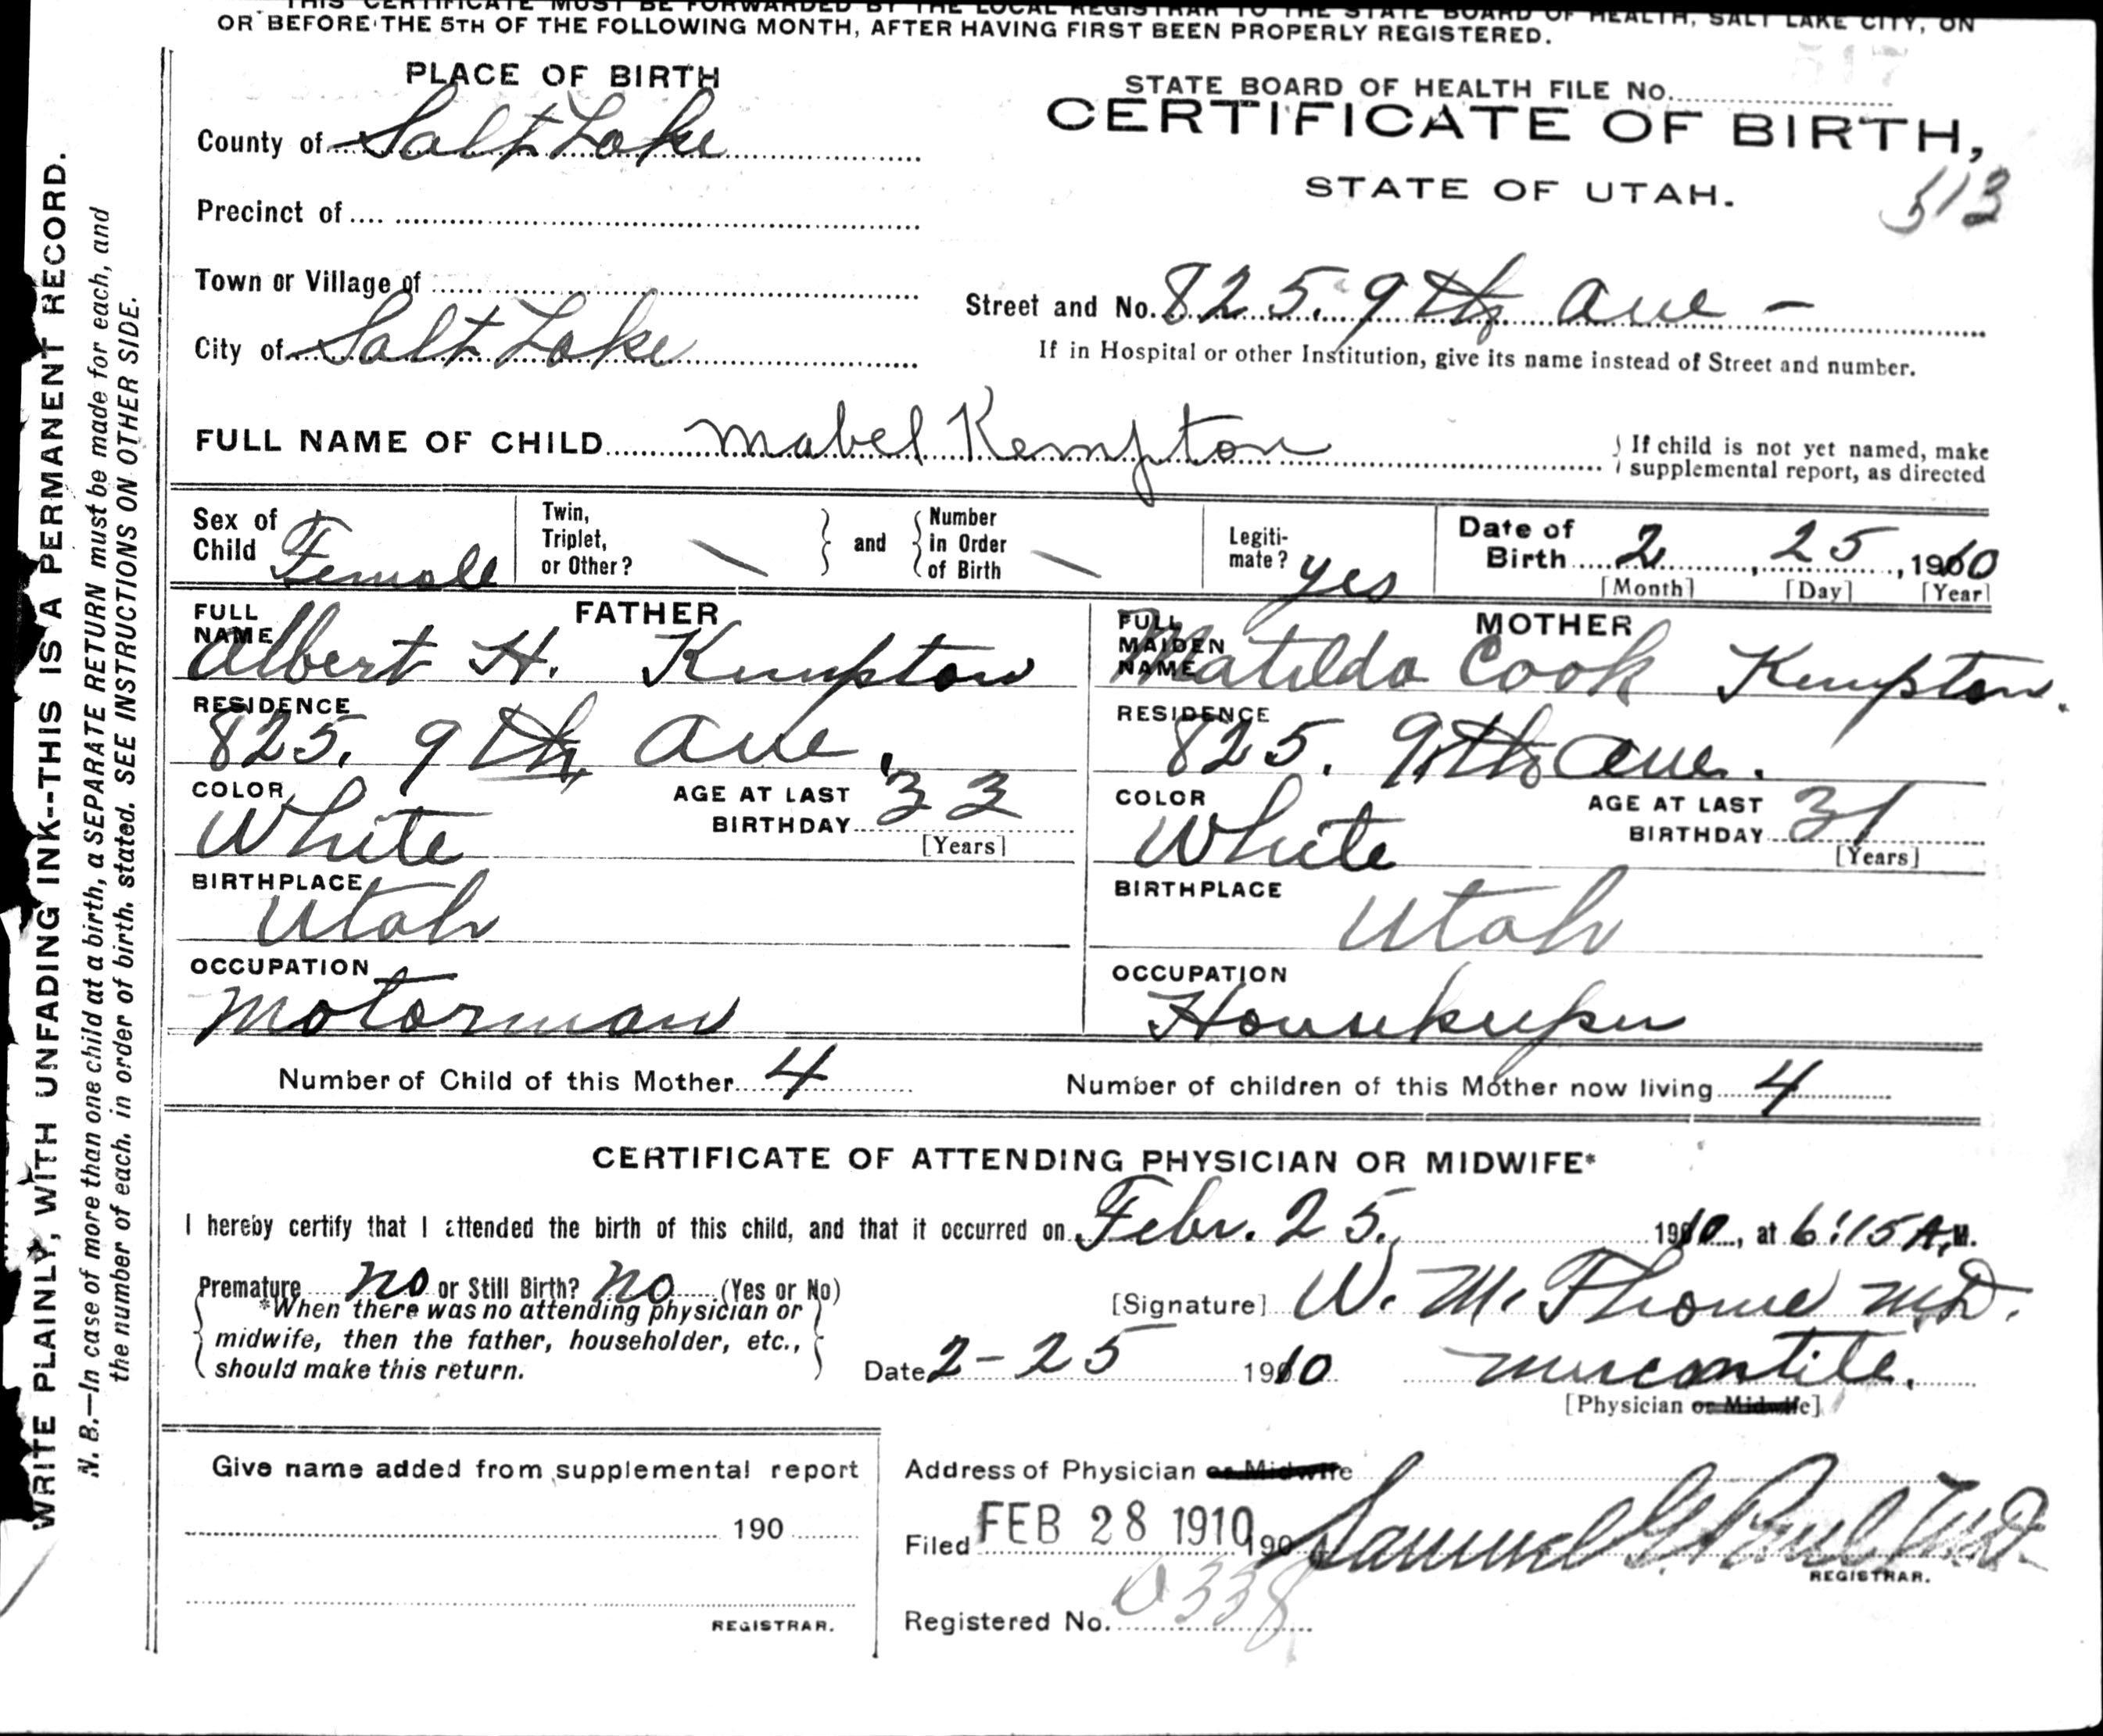 THIS CERTIFICATE MUST BE FORWARDED BY THE LOCAL REGISTRAR TO THE STATE BOARD OF HEALTH, SALT LAKE CITY, ON
OR BEFORE THE 5TH OF THE FOLLOWING MONTH, AFTER HAVING FIRST BEEN PROPERLY REGISTERED.
WRITE PLAINLY, WITH UNFADING INK--THIS IS A PERMANENT RECORD.
N. B.—In case of more than one child at a birth, a SEPARATE RETURN must be made for each, and
the number of each, in order of birth, stated. SEE INSTRUCTIONS ON OTHER SIDE.
PLACE OF BIRTH
County of Salt Lake
Precinct of
Town or Village of
City of Salt Lake
517
STATE BOARD OF HEALTH FILE NO.
CERTIFICATE OF BIRTH,
STATE OF UTAH.
513
Street and No. 825. 9th Ave -
If in Hospital or other Institution, give its name instead of Street and number.
FULL NAME OF CHILD Mabel Kempton
If child is not yet named, make
supplemental report, as directed
Sex of Child Female
Twin, Triplet, or Other? \ and Number in Order of Birth \
Legitimate? yes
Date of Birth 2, 25, 1910
[Month] [Day] [Year]
FATHER
FULL NAME Albert H. Kempton
RESIDENCE
825. 9th Ave.
COLOR White
AGE AT LAST BIRTHDAY 33
[Years]
BIRTHPLACE
Utah
OCCUPATION
Motorman
MOTHER
FULL MAIDEN NAME Matilda Cook Kempton.
RESIDENCE
825. 9th Ave.
COLOR White
AGE AT LAST BIRTHDAY 31
[Years]
BIRTHPLACE
Utah
OCCUPATION
Housekeeper
Number of Child of this Mother 4
Number of children of this Mother now living 4
CERTIFICATE OF ATTENDING PHYSICIAN OR MIDWIFE*
I hereby certify that I attended the birth of this child, and that it occurred on Febr. 25, 1910, at 6:15 A.M.
Premature no or Still Birth? no (Yes or No)
*When there was no attending physician or
midwife, then the father, householder, etc.,
should make this return.
[Signature] W. M. Thome M.D.
Date 2-25 1910 Mercantile.
[Physician or Midwife]
Give name added from supplemental report
190
REGISTRAR.
Address of Physician or Midwife
Filed FEB 28 1910 190 Samuel G. Paul M.D.
REGISTRAR.
Registered No. 0338